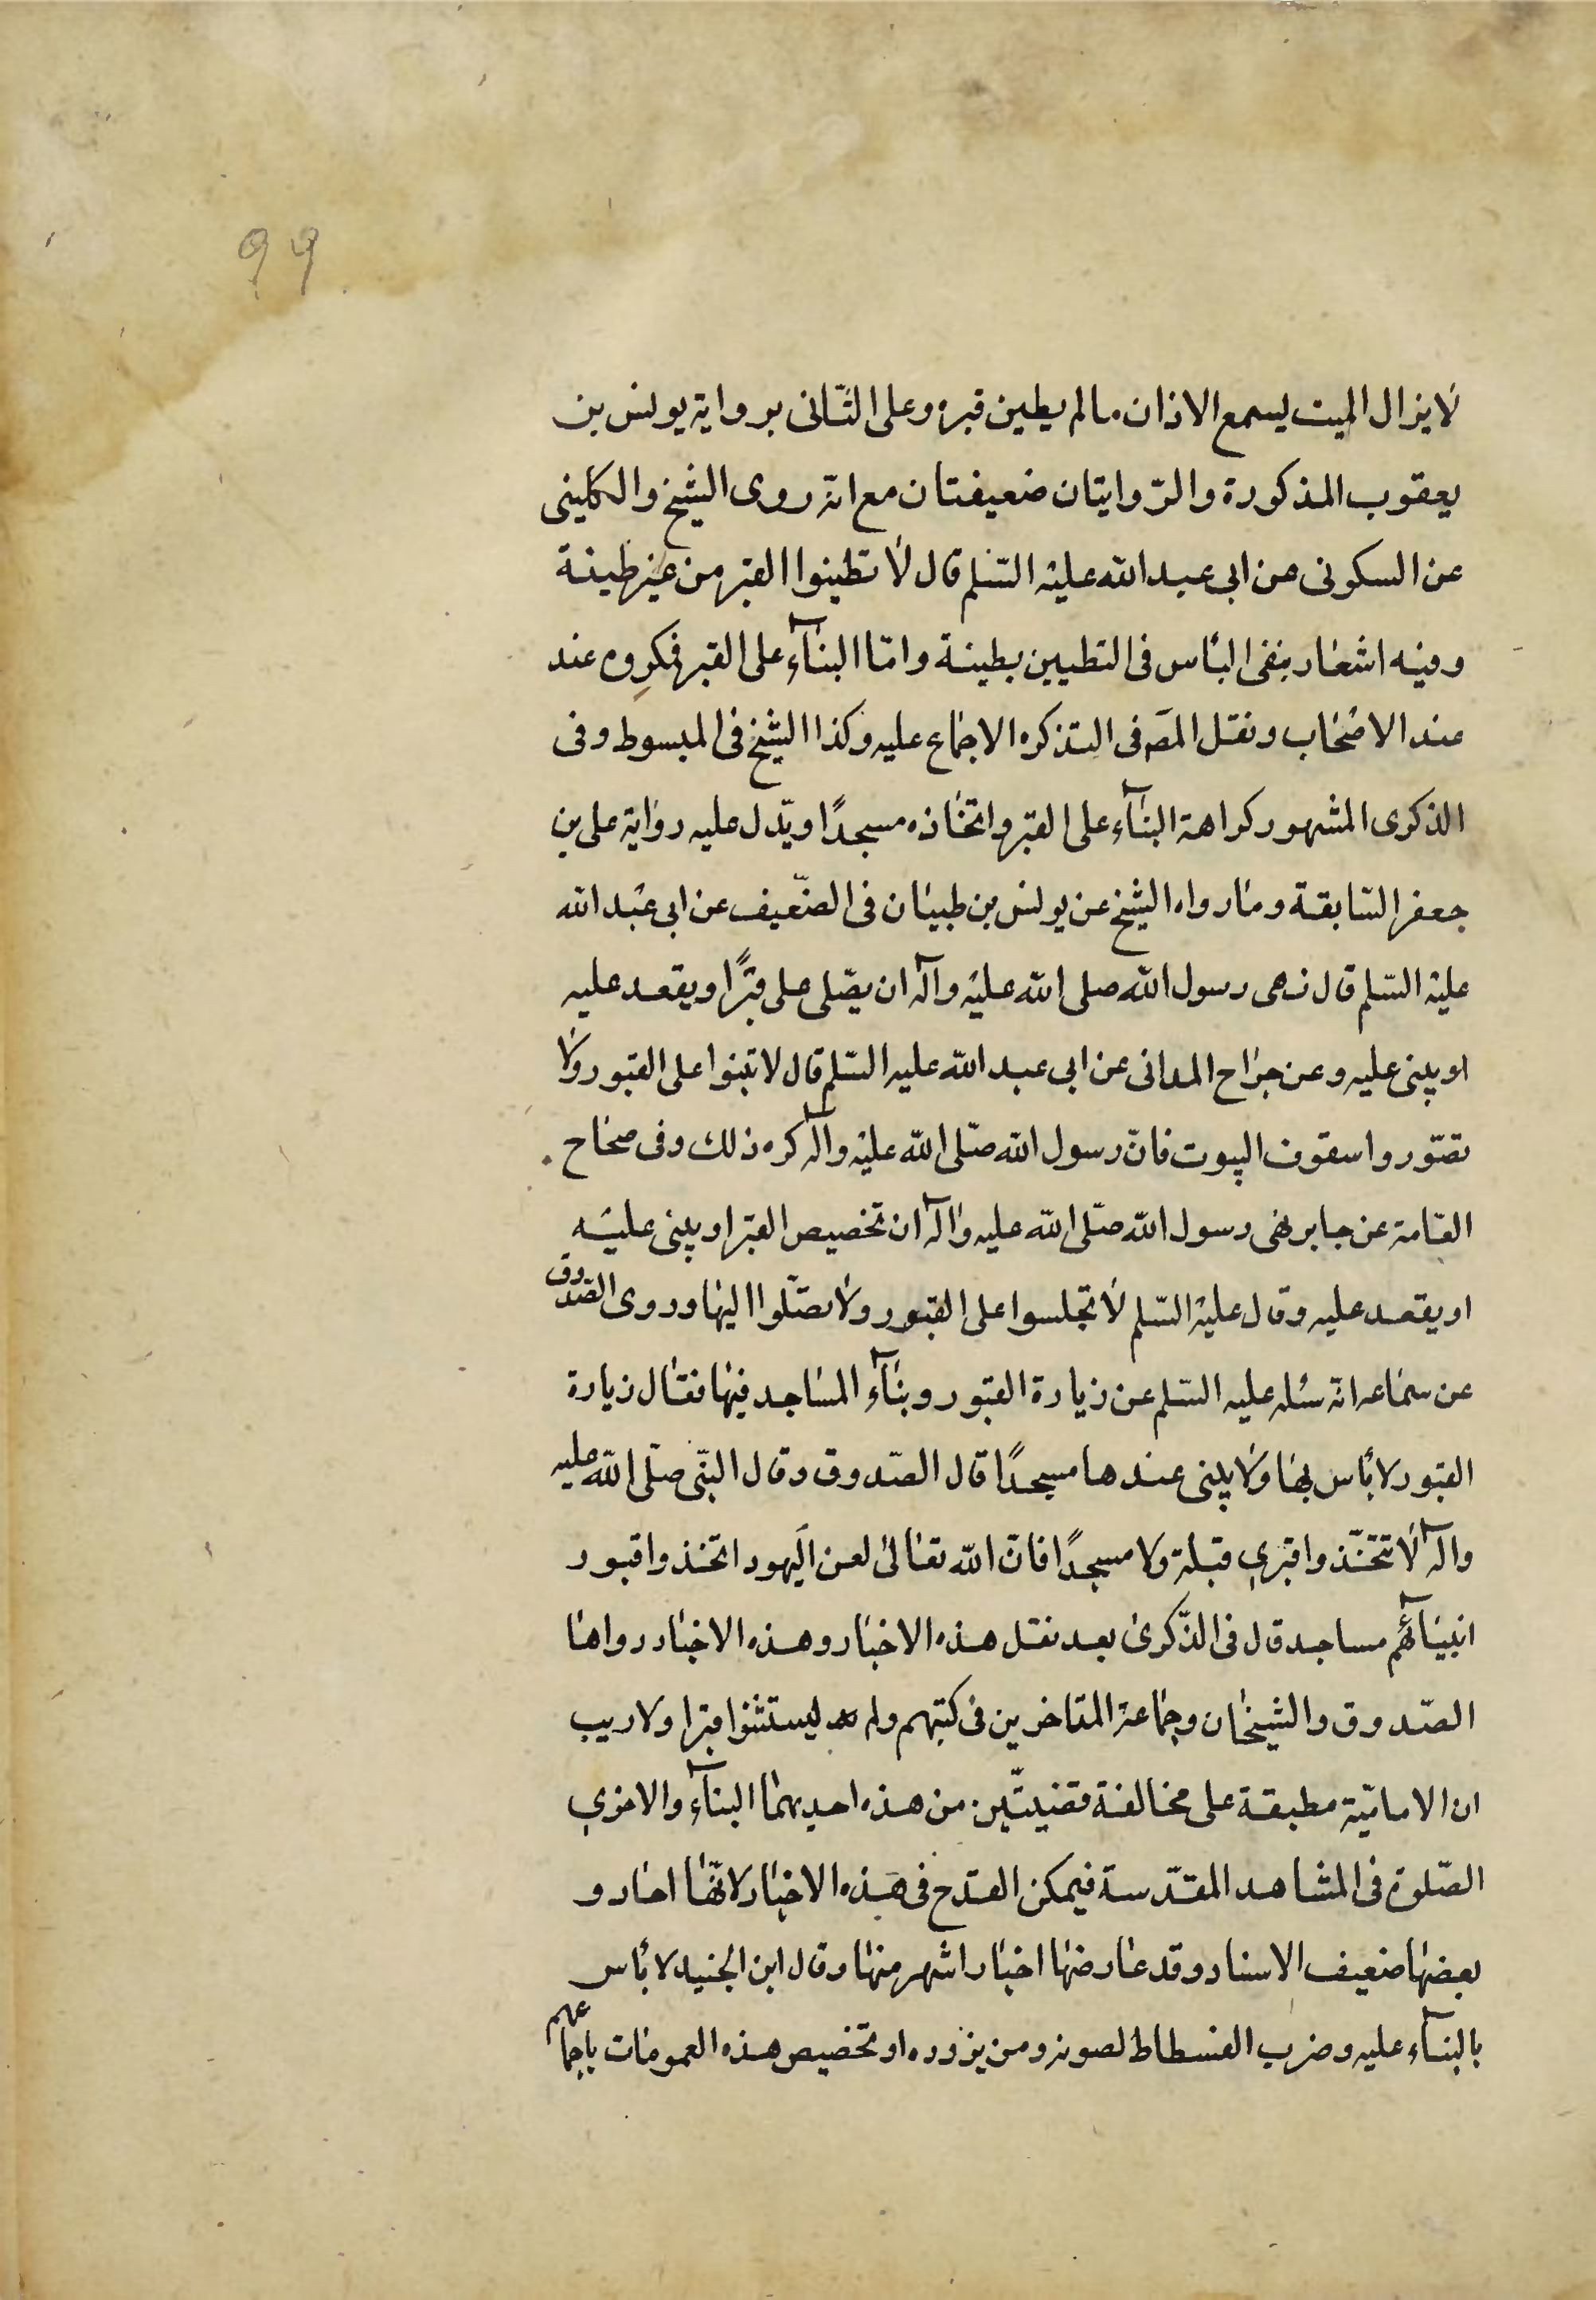 ٩٩
لا يزال الميت يسمع الاذان ما لم يطين قبره وعلى الثّانى برواية يونس بن
يعقوب المذكورة والرّوايتان ضعيفتان مع انّه روى الشيخ والكلينى
عن السكونى عن ابى عبد الله عليه السّلم قال لا تطينوا القبر من غير طينة
وفيه اشعار بنفى البأس فى التطيين بطينة وامّا البنآء على القبر فمكروه عند
عند الاصحاب ونقل المصَ فى التذكره الاجماع عليه وكذا الشيخ فى المبسوط وفى
الذكرى المشهور كراهة البنآء على القبر واتخاذه مسجدًا ويدّل عليه رواية على بن
جعفر السّابقة وما رواه الشيخ عن يونس بن طبيان فى الضّعيف عن ابى عبد الله
عليه السّلم قال نهى رسول الله صلى الله عليه وآله ان يصّلى على قبرًا ويقعد عليه
او يبنى عليه وعن جراح المدانى عن ابى عبد الله عليه السّلم قال لا تبنوا على القبور ولا
تصّوروا سقوف البيوت فانّ رسول الله صّلى الله عليه وآله كره ذلك وفى صحاح
العّامة عن جابر نهى رسول الله صّلى الله عليه وآله ان تخصيص القبر او يبنى عليه
او يقعد عليه وقال عليه السّلم لا تجلسوا على القبور ولا تصّلوا اليها وروى الصّدوق
عن سماعه انّه سئله عليه السّلم عن زيارة القبور وبنآء المساجد فيها فقال زيارة
القبور لا بأس بها ولا يبنى عندها مسجدًا قال الصّدوق وقال النبّى صلّى الله عليه
وآله لا تتخّذوا قبرى قبلة ولا مسجدًا فانّ الله تعالى لعن اليهود اتخذوا قبور
انبيآئهم مساجد قال فى الذّكرى بعد نقل هذه الاخبار وهذه الاخبار رواها
الصّدوق والشيخان وجماعة المتاخرين فى كتبهم ولم يستثنوا قبرا ولا ريب
ان الاماميّة مطبقة على مخالفة قضيتّين من هذه احديهما البنآء والاخرى
الصّلوة فى المشاهد المقدّسة فيمكن القدح فى هذه الاخبار لانّها احاد و
بعضها ضعيف الاسناد وقد عارضها اخبار اشهر منها وقال ابن الجنيد لا بأس
بالبنآء عليه وضرب الفسطاط لصونه ومن يزوره او تخصيص هذه العمومات باجماعهم